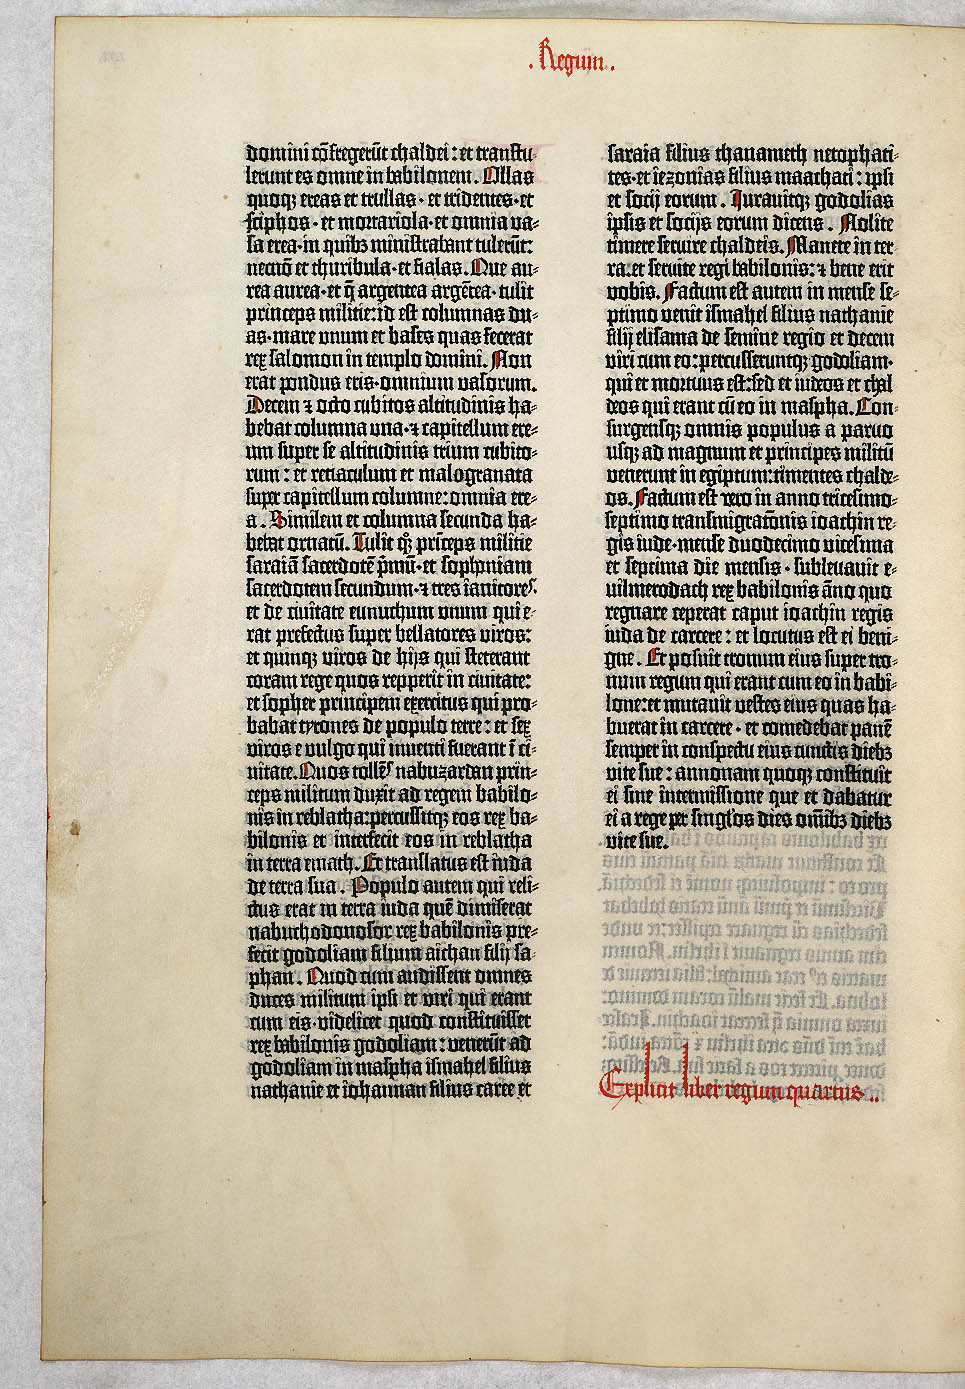 . Regum .
domini cōfregerūt chaldei : et transtu-
lerunt es omne in babilonem . Ollas
quoqꝫ ereas et trullas · et tridentes · et
sciphos · et mortariola · et omnia va-
sa erea · in quibꝫ ministrabant tulerūt :
necnō et thuribula · et fialas . Que au-
rea aurea · et q̄ argentea argētea · tulit
princeps militie : id est columnas du-
as · mare unum et bases quas fecerat
rex salomon in templo domini . Non
erat pondus eris · omnium vasorum .
Decem ⁊ octo cubitos altitudinis ha-
bebat columna una · ⁊ capitellum ere-
um super se altitudinis trium cubito-
rum : et retiaculum et malogranata
super capitellum columne : omnia ere-
a . Similem et columna secunda ha-
bebat ornatū . Tulit qꝫ princeps militie
saraiā sacerdotē p̄mū · et sophoniam
sacerdotem secundum · ⁊ tres ianitores .
et de civitate eunuchum unum qui e-
rat prefectus super bellatores viros :
et quinqꝫ viros de hijs qui steterant
coram rege quos repperit in civitate :
et sopher principem exercitus qui pro-
babat tyrones de populo terre : et sex
viros e vulgo qui inventi fuerant ī ci-
vitate . Quos tollēs nabuzardan prin-
ceps militum duxit ad regem babilo-
nis in reblatha : percussitqꝫ eos rex ba-
bilonis et interfecit eos in reblatha
in terra emath . Et translatus est iuda
de terra sua . Populo autem qui reli-
ctus erat in terra iuda quē dimiserat
nabuchodonosor rex babilonis pre-
fecit godoliam filium aichan filij sa-
phan . Quod cum audissent omnes
duces militum ipsi et viri qui erant
cum eis · videlicet quod constituisset
rex babilonis godoliam : venerūt ad
godoliam in maspha ismahel filius
nathanie et iohannan filius caree et
saraia filius thanameth netophati-
tes · et iezonias filius maachati : ipsi
et socij eorum . Juravitqꝫ godolias
ipsis et socijs eorum dicens . Nolite
timere servire chaldeis . Manete in ter-
ra . et servite regi babilonis : ⁊ bene erit
vobis . Factum est autem in mense se-
ptimo venit ismahel filius nathanie
filij elisama de semine regio et decem
viri cum eo : percusseruntqꝫ godoliam ·
qui et mortuus est : sed et iudeos et chal
deos qui erant cū eo in maspha . Con-
surgensqꝫ omnis populus a parvo
usqꝫ ad magnum et principes militū
venerunt in egiptum : timentes chalde-
os . Factum est vero in anno tricesimo-
septimo transmigratōnis ioachin re-
gis iude · mense duodecimo vicesima
et septima die mensis · sublevavit e-
vilmerodach rex babilonis āno quo
regnare ceperat caput ioachin regis
iuda de carcere : et locutus est ei beni-
gne . Et posuit tronum eius super tro-
num regum qui erant cum eo in babi-
lone : et mutavit vestes eius quas ha-
buerat in carcere · et comedebat panē
semper in conspectu eius cunctis diebꝫ
vite sue : annonam quoqꝫ constituit
ei sine intermissione que et dabatur
ei a rege per singlos dies omībꝫ diebꝫ
vite sue .
Explicit liber regum quartus ..